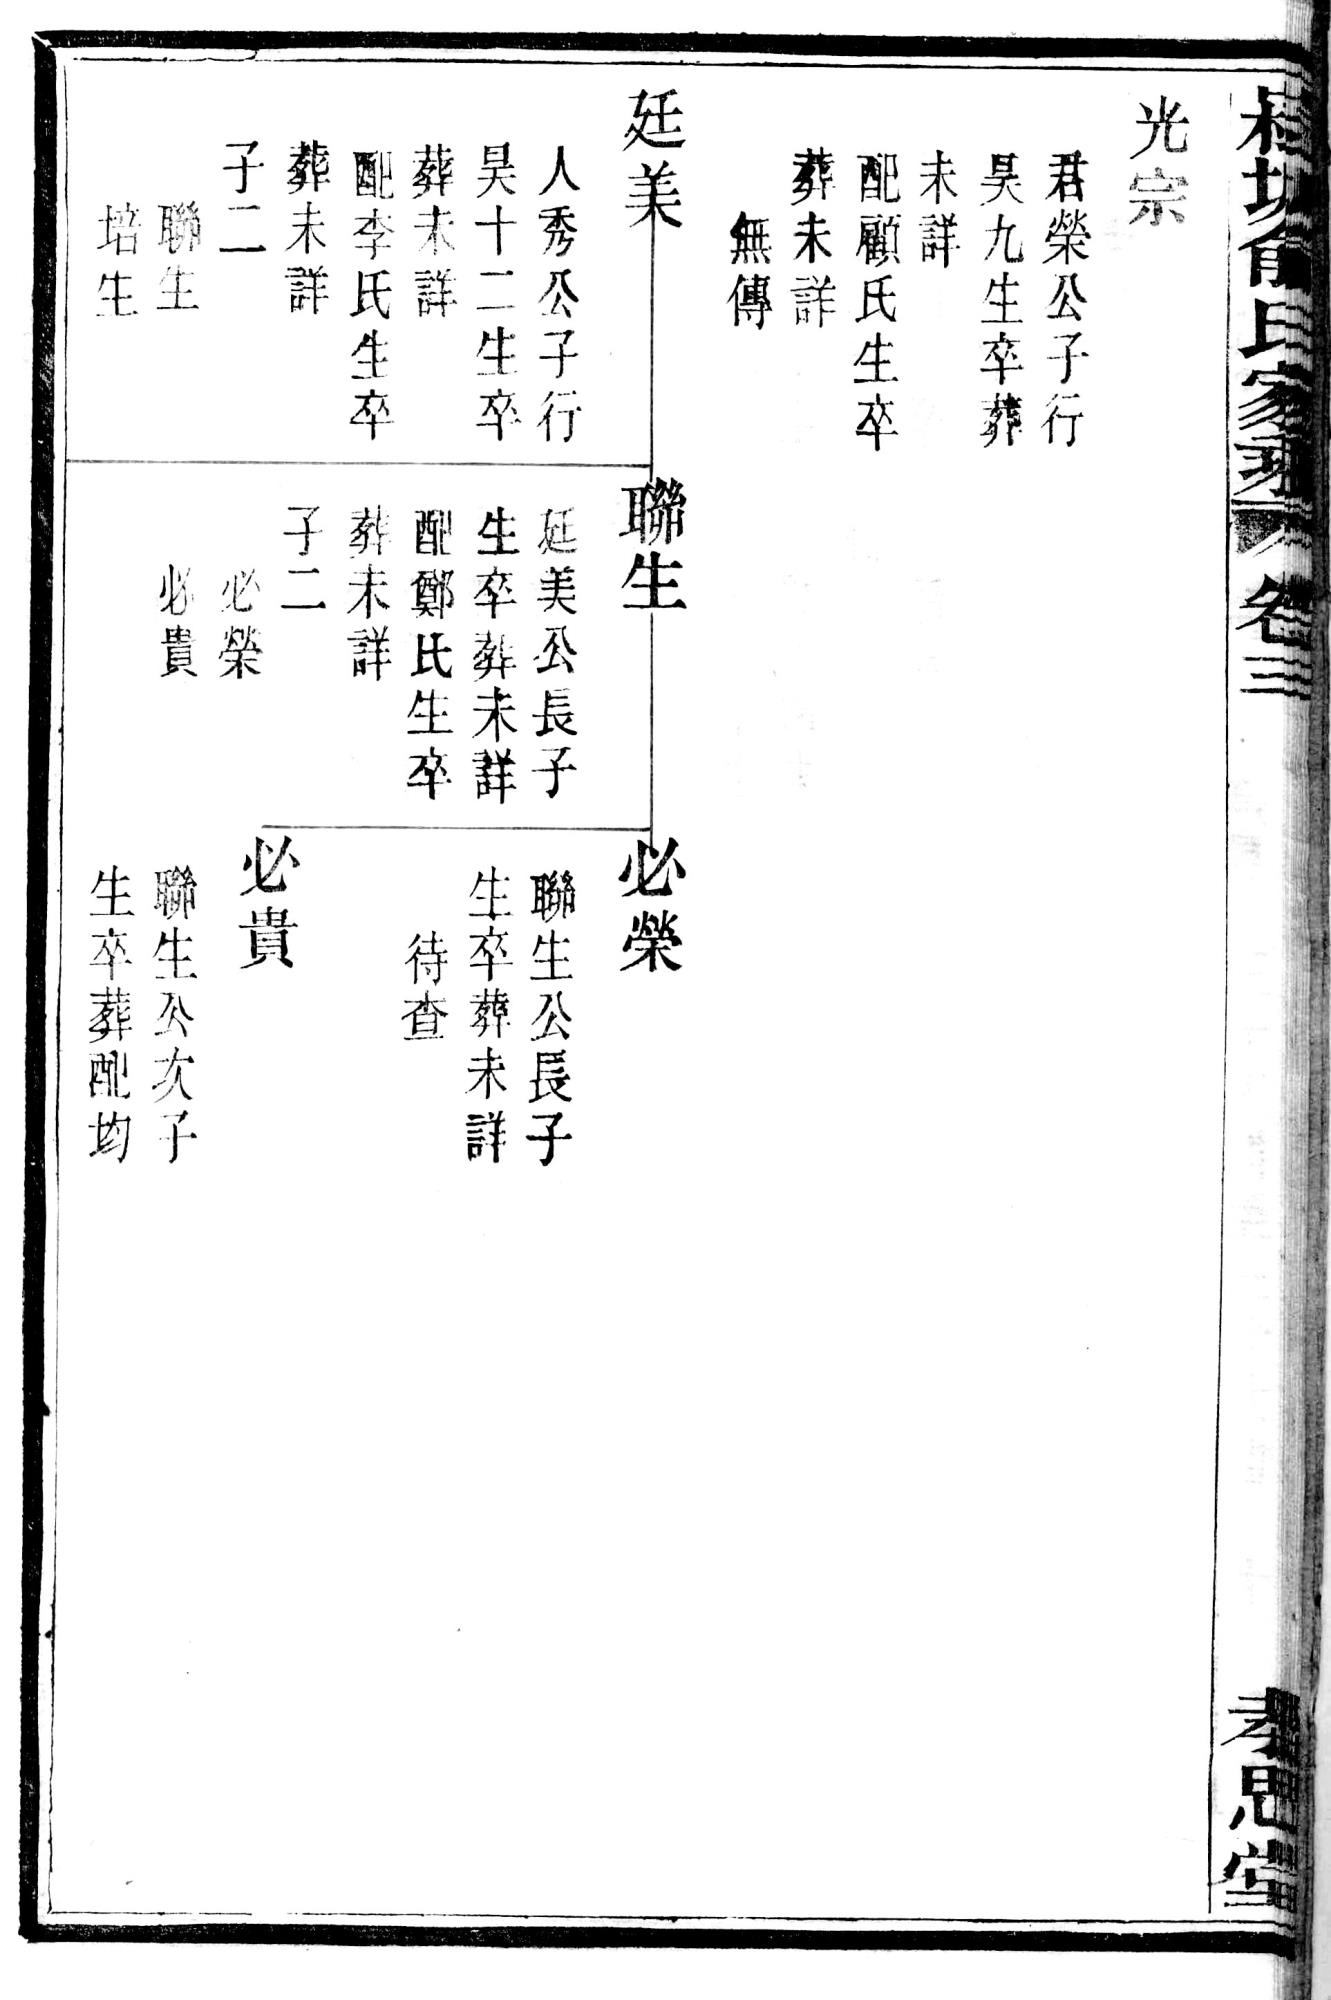 俞氏家乘 卷三
孝思堂
光宗
君榮公子行
昊九生卒葬
未詳
配顧氏生卒
葬未詳
無傳
廷美
人秀公子行
昊十二生卒
葬未詳
配李氏生卒
葬未詳
子二
聯生
培生
聯生
廷美公長子
生卒葬未詳
配鄭氏生卒
葬未詳
子二
必榮
必貴
必榮
聯生公長子
生卒葬未詳
待查
必貴
聯生公次子
生卒葬配均